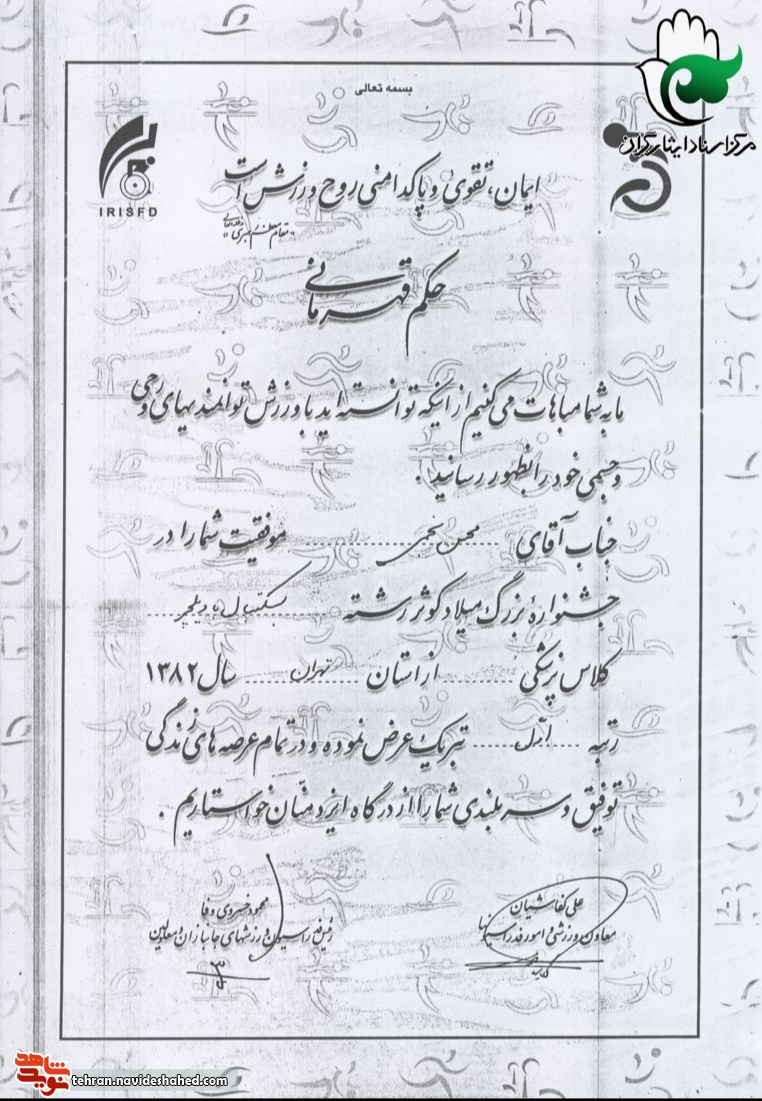 بسمه تعالی
مرکز اسناد ایثارگران
IRISFD
ایمان، تقوی و پاکدامنی روح ورزش است
"مقام معظم رهبری"
حکم قهرمانی
ما به شما مباهات می کنیم از اینکه توانسته اید با ورزش توانمندیهای روحی
و جسمی خود را بظهور رسانید .
جناب آقای محسن موفقیت شما را در
جشنواره بزرگ میلاد کوثر رشته بسکتبال با ویلچر
کلاس پزشکی از استان تهران سال ۱۳۸۲
رتبه اول تبریک عرض نموده و در تمام عرصه های زندگی
توفیق و سربلندی شما را از درگاه ایزد منان خواستاریم .
علی کفاشیان
معاون ورزشی و امور فدراسیونها
محمود خسروی وفا
رئیس فدراسیون ورزشهای جانبازان و معلولین
نوید شاهد
tehran.navideshahed.com